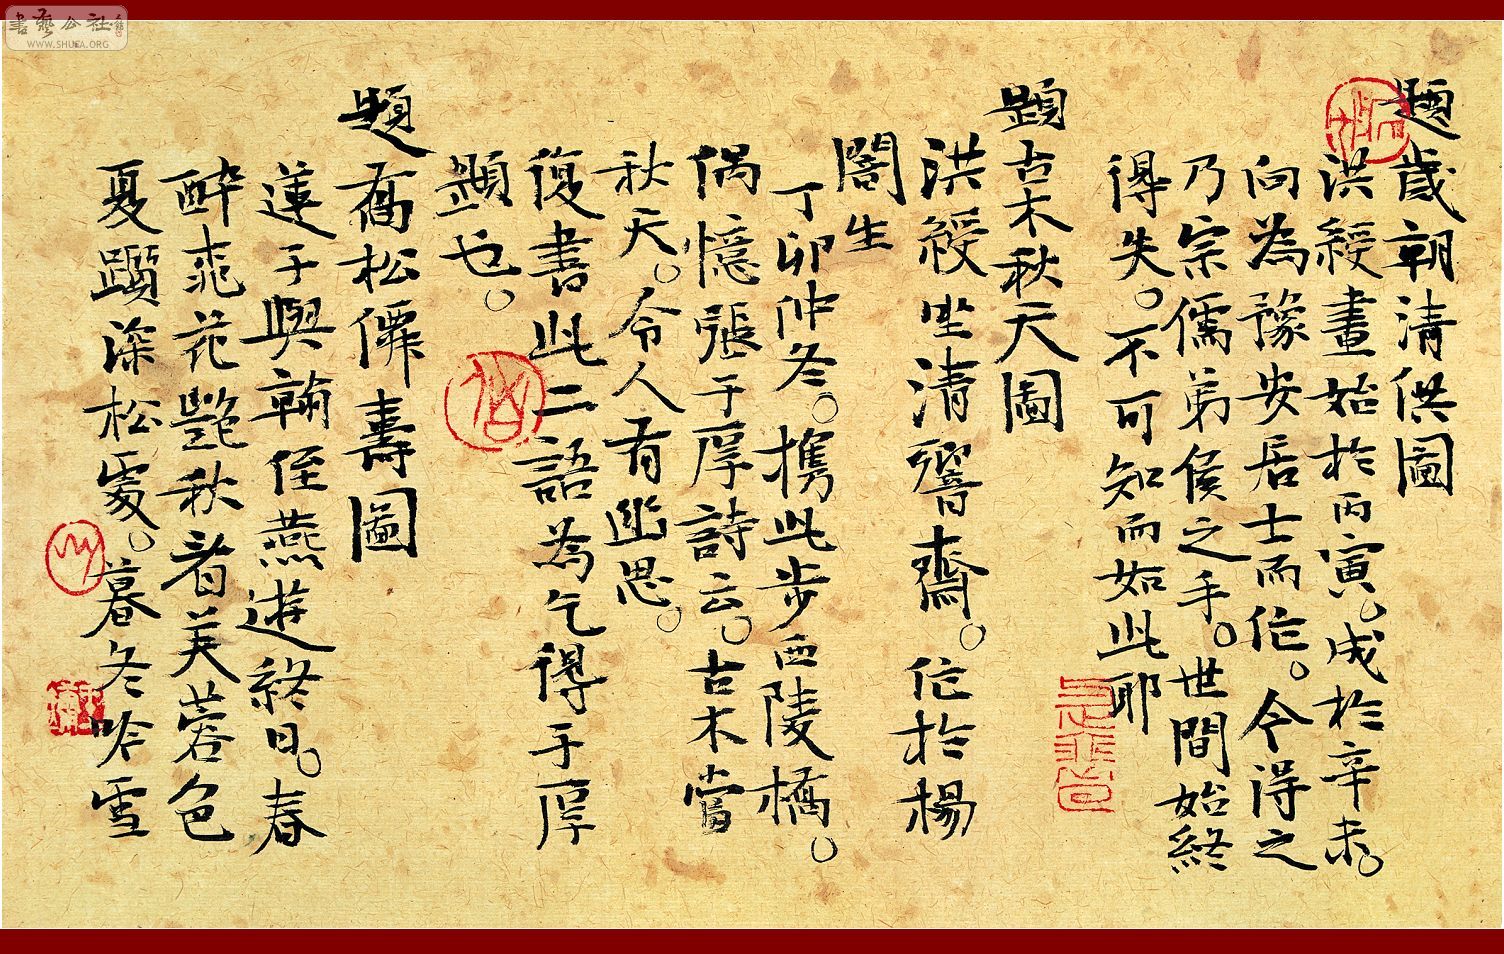 題歲朝清供圖
洪綬畫始於丙寅。成於辛未。
向為豫安居士而作。今得之
乃宗儒弟侯之手。世間始終
得失。不可知而如此耶
題古木秋天圖
洪綬坐清響齋。作於楊
閣生
丁卯仲冬。攜此步西陵橋。
偶憶張于厚詩云。古木嘗
秋天。令人有幽思。
復書此二語為乞得于厚
題也。
題喬松僊壽圖
蓮子與翰侄燕遊終日。春
醉桃花艷秋看芙蓉色
夏躋深松處。暮冬吟雪
書藝公社
WWW.SHUFA.ORG